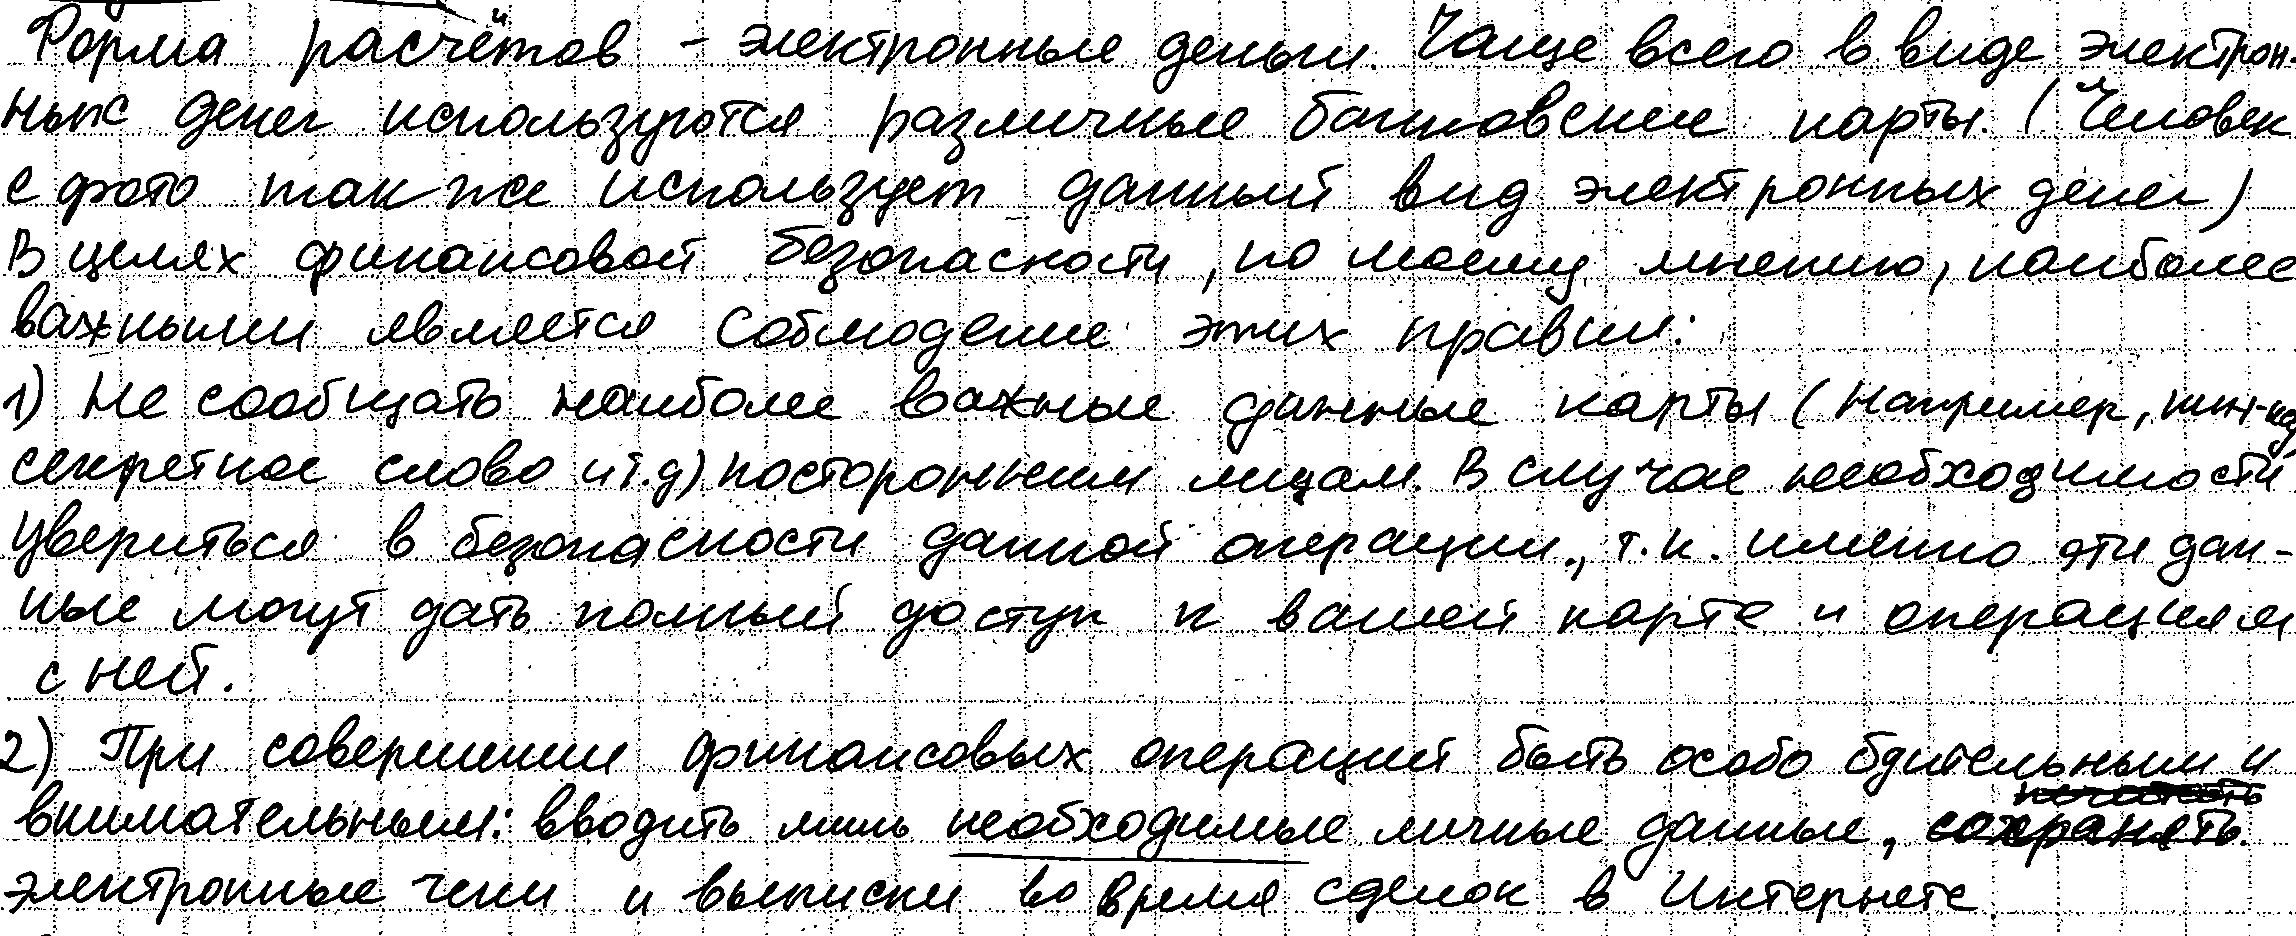 Форма расчётов - электронные деньги. Чаще всего в виде электрон-
ных денег используются различные банковские карты. (Человек
с фото так же использует данный вид электронных денег)
В целях финансовой безопасности, по моему мнению, наиболее
важными является соблюдение этих правил:
1) Не сообщать наиболее важные данные карты (например, пин-код
секретное слово и т.д) посторонним лицам. В случае необходимости
увериться в безопасности данной операции., т.к. именно эти дан-
ные могут дать полный доступ к вашей карте и операциям
с ней.
2) При совершении финансовых операций быть особо бдительным и
внимательным: вводить лишь необходимые личные данные, сохранять
электронные чеки и выписки во время сделок в Интернете.